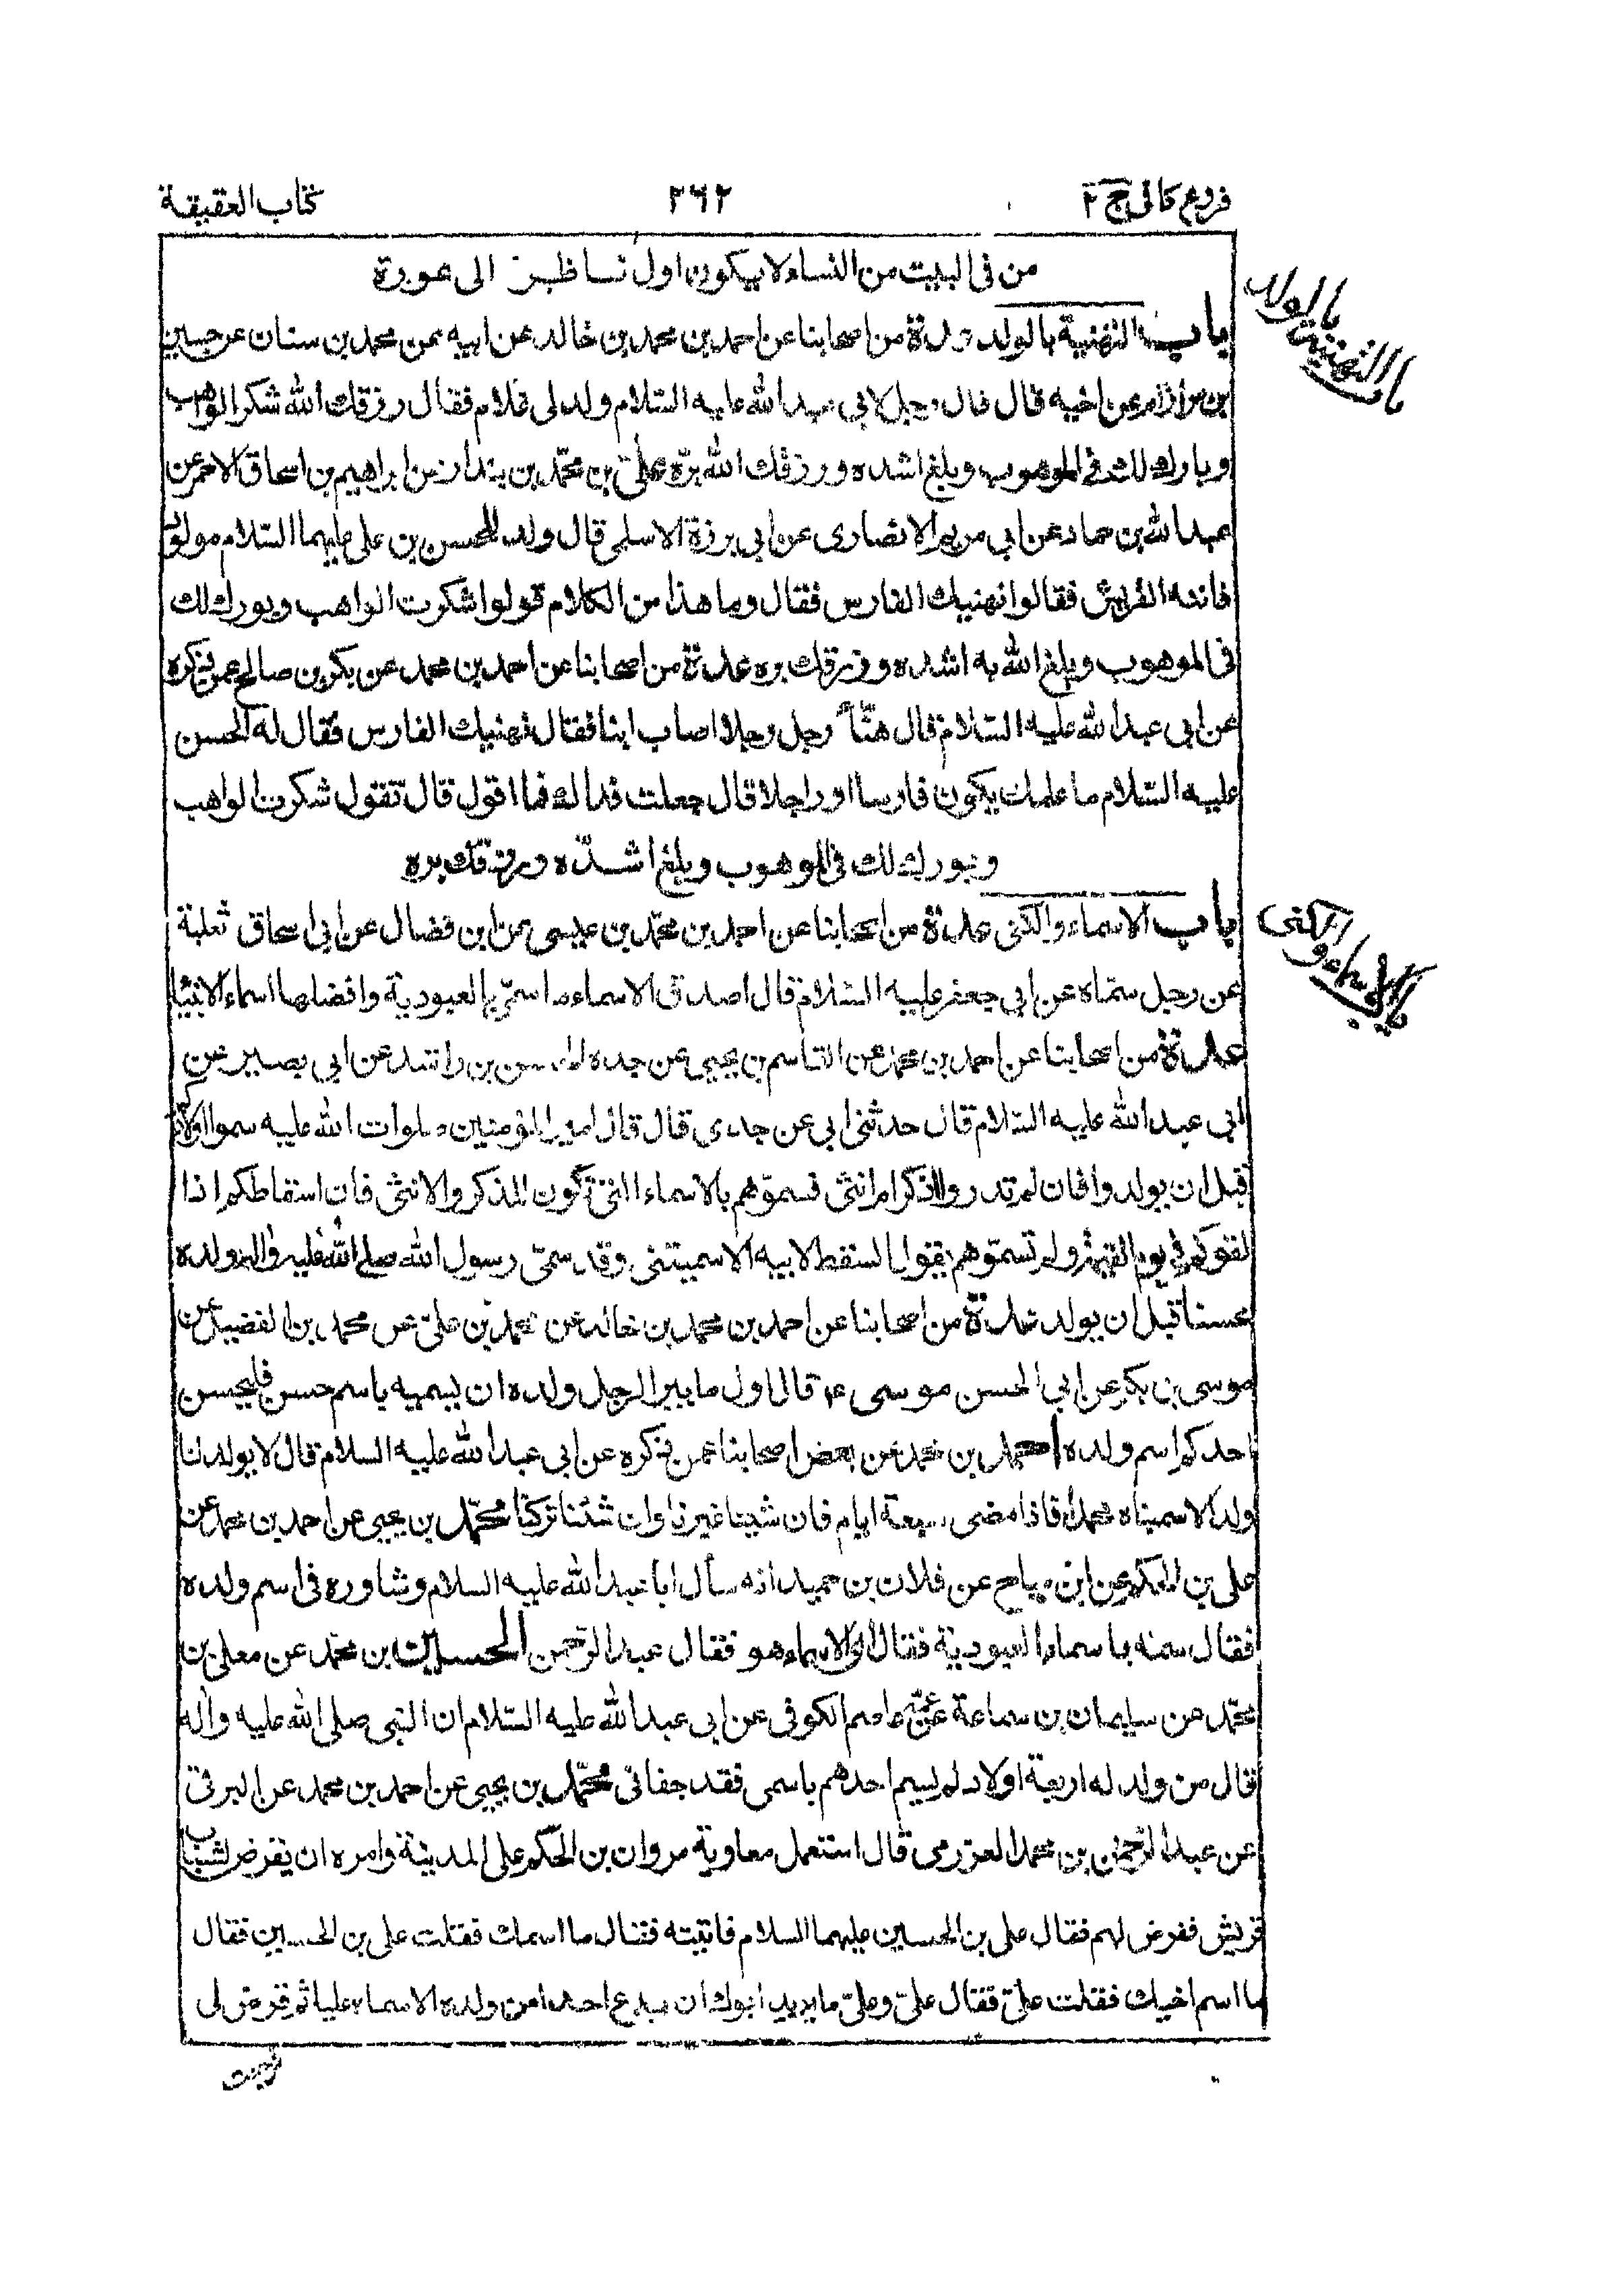 فروع كافى ج ٢
٢٦٢
كتاب العقيقة
من فى البيت من النساء لا يكون اول ناظر الى عورة
باب التهنية بالولد عدة من اصحابنا عن احمد بن محمد بن خالد عن ابيه عمن محمد بن سنان عن حسين
بن عن اخيه قال قال رجل لابى عبد الله عليه السّلام ولد لى غلام فقال رزقك الله شكر الواهب
وبارك لك فى الموهوب وبلغ اشده ورزقك الله برّه على بن محمّد بن بندار عن ابراهيم بن اسحاق الاحمر عن
عبد الله بن حماد عن ابى مريم الانصارى عن ابى برزة الاسلمى قال ولد للحسن بن على عليهما السّلام مولود
فاتته القريش فقالوا نهنيك الفارس فقال وما هذا من الكلام قولوا شكرت الواهب وبورك لك
فى الموهوب وبلغ الله به اشده ورزقك بره عدة من اصحابنا عن احمد بن محمد عن بكر بن صالح عمن ذكره
عن ابى عبد الله عليه السّلام قال هنّأ رجل رجلا اصاب ابنا فقال نهنيك الفارس فقال له الحسن
عليه السّلام ما علمك يكون فارسا او راجلا قال جعلت فداك فما اقول قال تقول شكرت الواهب
وبورك لك فى الموهوب وبلغ اشدّه ورزقك بره
باب الاسماء والكنى عدة من اصحابنا عن احمد بن محمّد بن عيسى عن ابن فضال عن ابى اسحاق ثعلبة
عن رجل سمّاه عن ابى جعفر عليه السّلام قال اصدق الاسماء ما سمّى بالعبودية وافضلها اسماء الانبيا
عدة من اصحابنا عن احمد بن محمد عن القاسم بن يحيى عن جده الحسن بن راشد عن ابى بصير عن
ابى عبد الله عليه السّلام قال حدثنى ابى عن جدى قال قال امير المؤمنين صلوات الله عليه سموا اولادكم
قبل ان يولدوا فان لم تدروا اذكر ام انثى فسمّوهم بالاسماء التى تكون للذكر والانثى فان اسقاطكم اذا
لقوكم فى يوم القيمة ولم تسمّوهم يقول السقط لابيه الا سميتنى وقد سمّى رسول الله صلى الله عليه واله ولده
محسنا قبل ان يولد عدة من اصحابنا عن احمد بن محمد بن خالد عن محمد بن على عن محمد بن الفضيل عن
موسى بن بكر عن ابى الحسن موسى ع قال اول ما يبر الرجل ولده ان يسميه باسم حسن فليحسن
احدكم اسم ولده احمد بن محمد عن بعض اصحابنا عمن ذكره عن ابى عبد الله عليه السلام قال لا يولد لنا
ولد الا سميناه محمدا فاذا مضى سبعة ايام فان شينا غيرنا وان شئنا تركنا محمّد بن يحيى عن احمد بن محمد عن
على بن الحكم عن ابن مياح عن فلان بن حميد انه سأل ابا عبد الله عليه السلام وشاوره فى اسم ولده
فقال سمّه باسماء العبودية فقال اىّ الاسماء هو فقال عبد الرّحمن الحسين بن محمّد عن معلى بن
محمّد عن سليمان بن سماعة عن عمّه عاصم الكوفى عن ابى عبد الله عليه السّلام ان النبى صلى الله عليه واله
قال من ولد له اربعة اولاد لم يسم احدهم باسمى فقد جفانى محمّد بن يحيى عن احمد بن محمد عن البرقى
عن عبد الرّحمن بن محمد العزرمى قال استعمل معاوية مروان بن الحكم على المدينة وامره ان يفرض لشباب
قريش ففرض لهم فقال على بن الحسين عليهما السلام فاتيته فقال ما اسمك فقلت على بن الحسين فقال
ما اسم اخيك فقلت علىّ فقال علىّ وعلىّ ما يريد ابوك ان يدع احدا من ولده الا سماه عليا ثم فرض لى
باب التهنية بالولد
باب الاسماء والكنى
فرجعت